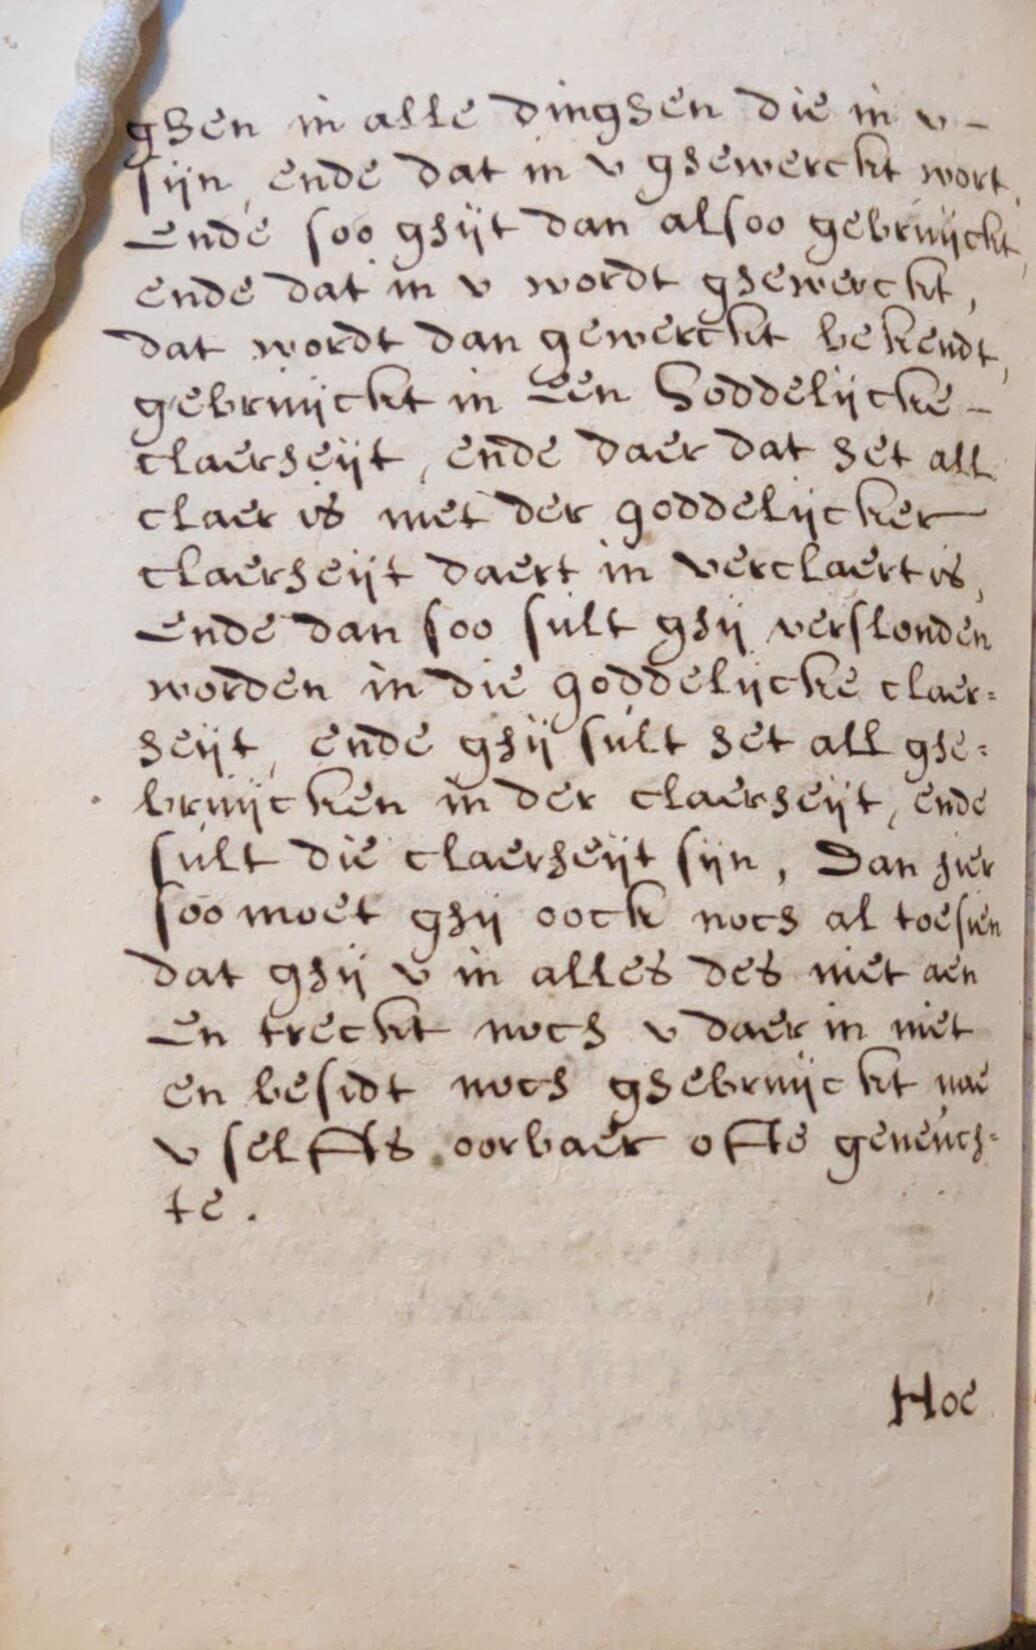 ghen in alle dinghen die in v -
sijn, ende dat in v ghewerckt wort,
Ende soo ghijt dan alsoo gebruijckt,
ende dat in v wordt ghewerckt,
dat wordt dan gewerckt bekendt,
gebruijckt in Een Goddelijcke -
claerheijt, ende daer dat het all
claer is met der goddelijcker
claerheijt daert in verclaert is,
Ende dan soo sult ghij verslonden
worden in die goddelijcke claer=
heijt, ende ghij sult het all ghe=
bruijcken in der claerheijt, ende
sult die claerheijt sijn, Dan hier
soo moet ghij oock noch al toesien
dat ghij v in alles des niet aen
En treckt noch v daer in niet
en besidt noch ghebruijckt nae
v selffs oorbaer ofte geneuch=
te.
Hoe